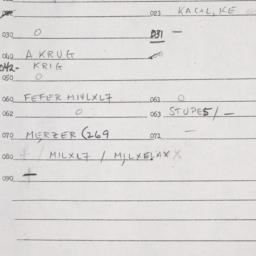 023 KACHL, KE
030 O 031 —
040 A KRUG
042- KRIG
050 O
060 FEFER MIVLXL7 061 O
062 O 063 STUPE5/—
070 MERZER (269 072 —
080 / MILXL7 / MILXELAX X
090 —